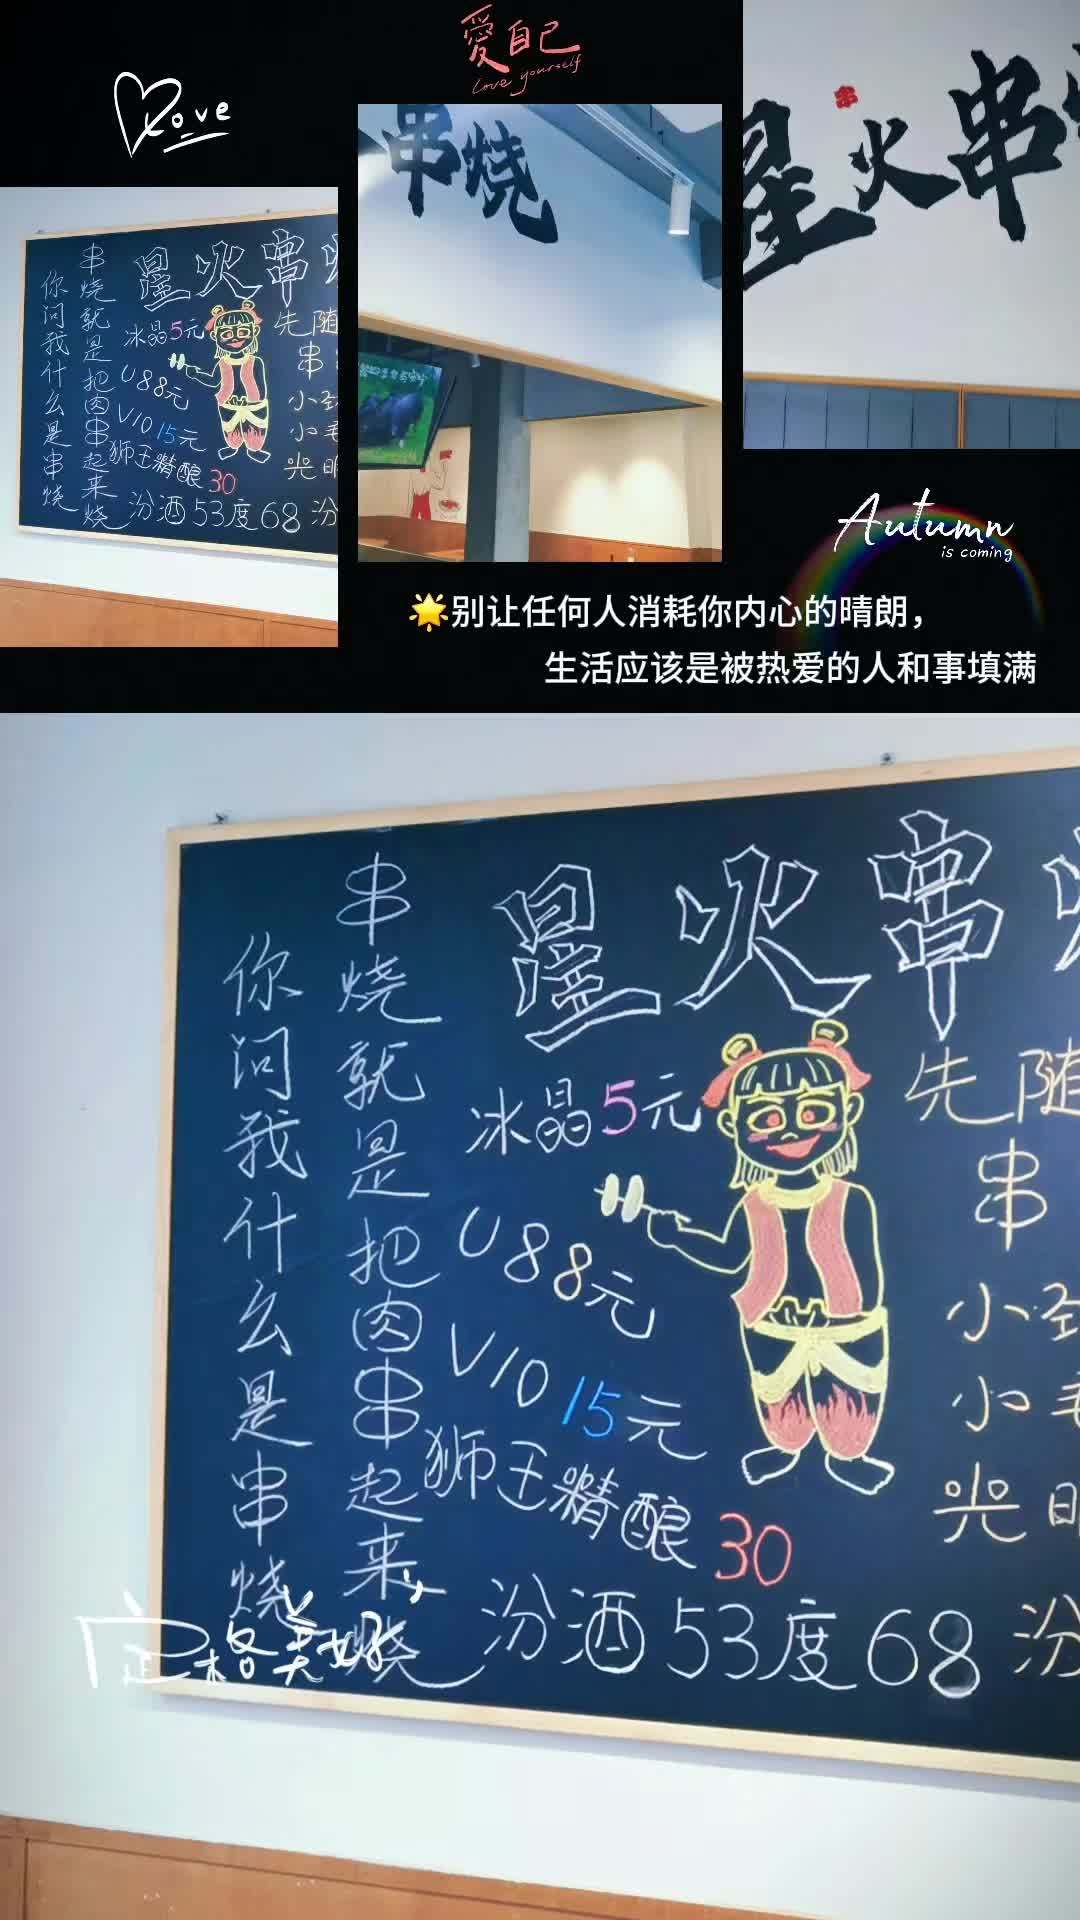 愛自己
love yourself
Love
串烧
星火串
串
你问我什么是串烧
串烧就是把肉串起来烧
星火串
冰晶5元
U88元
V10 15元
狮王精酿30
汾酒53度68
先随
串
小
光明
Autumn
is coming
🌟别让任何人消耗你内心的晴朗，
生活应该是被热爱的人和事填满
你问我什么是串烧
串烧就是把肉串起来烧
星火串
冰晶5元
U88元
V10 15元
狮王精酿30
汾酒53度68 汾
先随
串
小劲
小毛
光明
定格美好